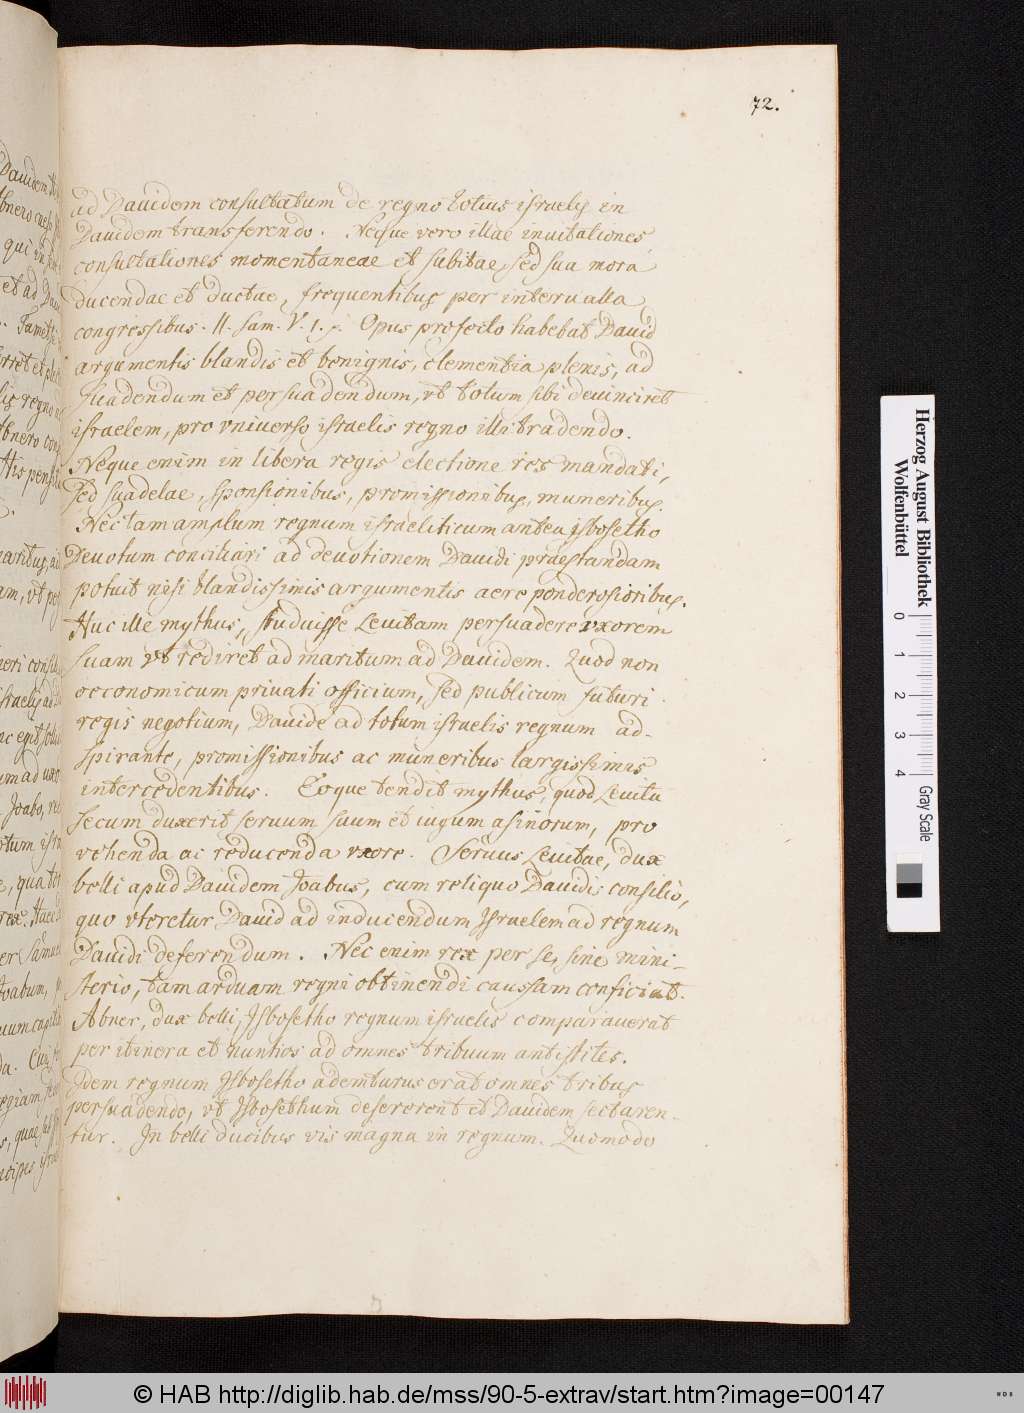 72.
ad Dauidem consultatum de regno totius israelis in
Dauidem transferendo. Neque vero illae inuitationes,
consultationes momentaneae et subitae, sed sua mora
ducendae et ductae, frequentibus per interualla
congressibus. II. Sam. V. 1. Opus profecto habebat Dauid
argumentis blandis et benignis, clementia plenis, ad
suadendum et persuadendum, vt totum sibi deuinciret
israelem, pro vniuerso israelis regno illi tradendo.
Neque enim in libera regis electione res mandati,
sed suadelae, sponsionibus, promissionibus, muneribus.
Nec tam amplum regnum israeliticum antea isbosetho
Deuotum conciliari ad deuotionem Dauidi praestandam
potuit nisi blandissimis argumentis aere ponderosioribus.
Huc ille mythus, studuisse Leuitam persuadere vxorem
suam vt rediret ad maritum ad Dauidem. Quod non
oeconomicum priuati officium, sed publicum futuri
regis negotium, Dauide ad totum israelis regnum ad-
spirante, promissionibus ac muneribus largissimis
intercedentibus. Eoque tendit mythus, quod Leuita
secum duxerit seruum suum et iugum asinorum, pro
vehenda ac reducenda vxore. Seruus Leuitae, dux
belli apud Dauidem Joabus, cum reliquo Dauidis consilio,
quo vteretur Dauid ad inducendum Israelem ad regnum
Dauidi deferendum. Nec enim rex per se, sine mini-
sterio, tam arduam regni obtinendi caussam conficiat.
Abner, dux belli, Isbosetho regnum israelis comparauerat
per itinera et nuntios ad omnes tribuum antistites.
Idem regnum Isbosetho ademturus erat omnes tribus
persuadendo, vt Isbosethum desererent et Dauidem sectaren-
tur. In belli ducibus vis magna in regnum. Quomodo
Herzog August Bibliothek
Wolfenbüttel
0 1 2 3 4
Gray Scale
© HAB http://diglib.hab.de/mss/90-5-extrav/start.htm?image=00147